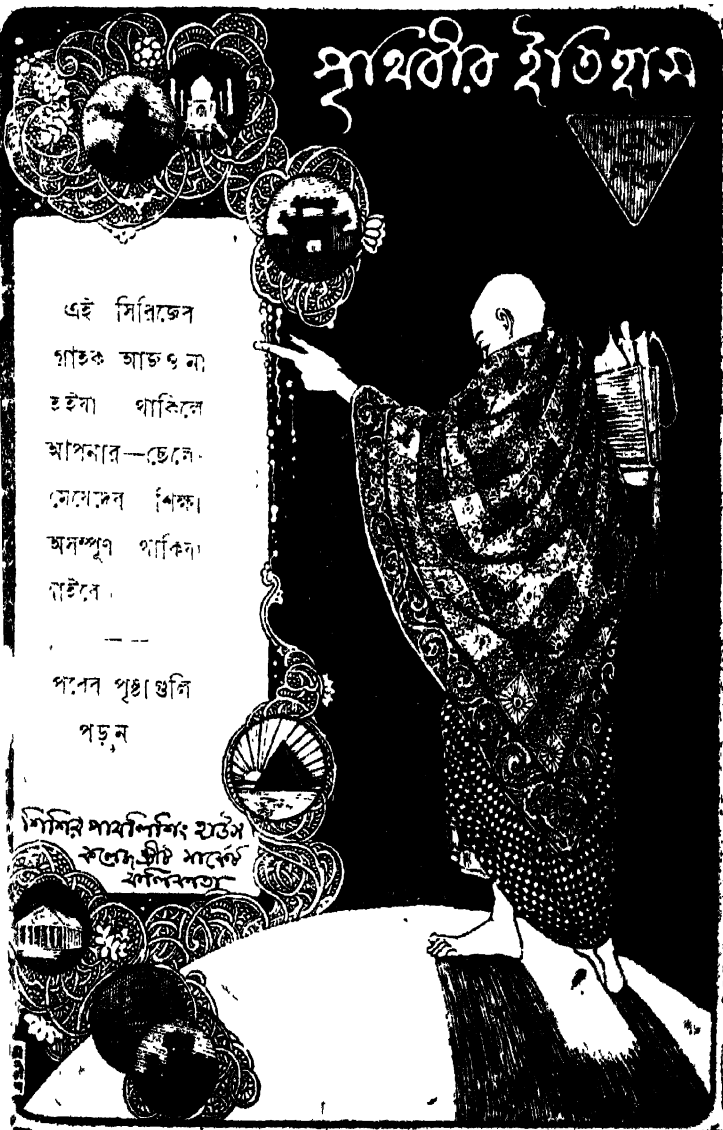 পৃথিবীর ইতিহাস
এই সিরিজের
গ্রাহক আজও না
হইয়া থাকিলে
আপনার—ছেলে-
মেয়েদের শিক্ষা
অসম্পূর্ণ থাকিয়া
যাইবে।
পরের পৃষ্ঠাগুলি
পড়ুন
শিশির পাবলিশিং হাউস
কলেজ ষ্ট্রীট মার্কেট
কলিকাতা